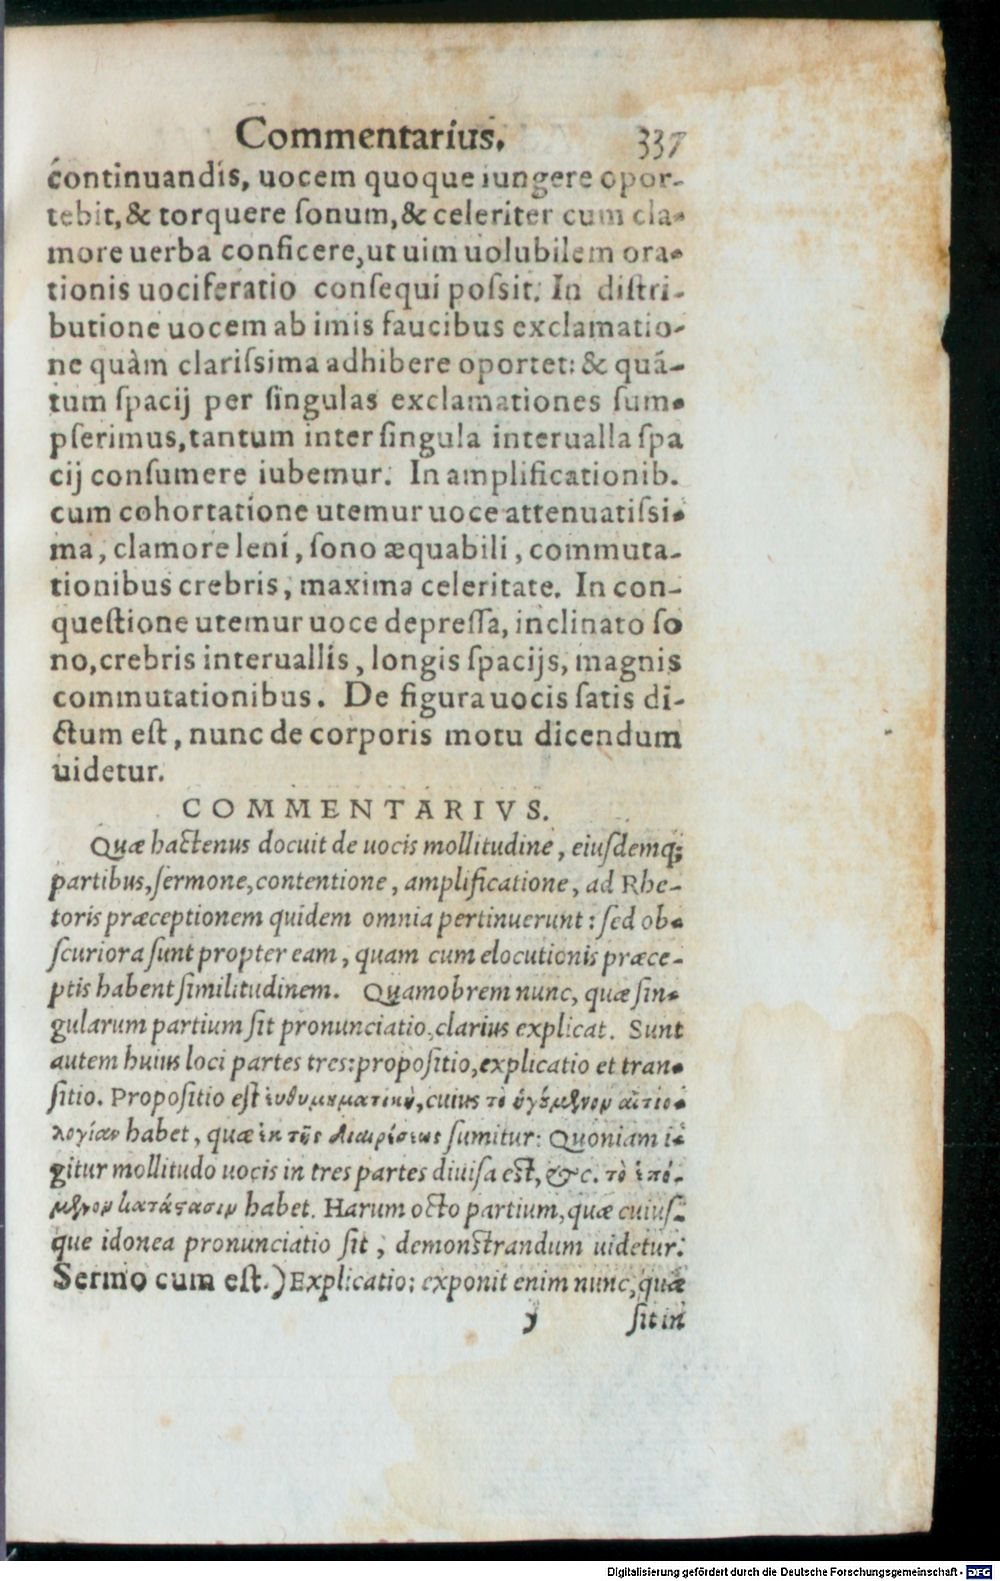 Commentarius. 337
continuandis, uocem quoque iungere opor-
tebit, & torquere ſonum, & celeriter cum cla-
more uerba conficere, ut uim uolubilem ora-
tionis uociferatio conſequi poſsit. In diſtri-
butione uocem ab imis faucibus exclamatio-
ne quàm clariſsima adhibere oportet: & quã-
tum ſpacij per ſingulas exclamationes ſum-
pſerimus, tantum inter ſingula interualla ſpa
cij conſumere iubemur. In amplificationib.
cum cohortatione utemur uoce attenuatiſsi-
ma, clamore leni, ſono æquabili, commuta-
tionibus crebris, maxima celeritate. In con-
queſtione utemur uoce depreſſa, inclinato ſo
no, crebris interuallis, longis ſpacijs, magnis
commutationibus. De figura uocis ſatis di-
ctum eſt, nunc de corporis motu dicendum
uidetur.
COMMENTARIVS.
Quæ hactenus docuit de uocis mollitudine, eiuſdemq;
partibus, ſermone, contentione, amplificatione, ad Rhe-
toris præceptionem quidem omnia pertinuerunt: ſed ob-
ſcuriora ſunt propter eam, quam cum elocutionis præce-
ptis habent ſimilitudinem. Quamobrem nunc, quæ ſin-
gularum partium ſit pronunciatio, clarius explicat. Sunt
autem huius loci partes tres: propoſitio, explicatio et tran-
ſitio. Propoſitio eſt ἐνθυμηματικὴ, cuius τὸ ἡγούμενον αἰτιο-
λογίαν habet, quæ ἐκ τῆς διαιρέσεως ſumitur: Quoniam i-
gitur mollitudo uocis in tres partes diuiſa eſt, &c. τὸ ἑπό-
μενον κατάστασιν habet. Harum octo partium, quæ cuiuſ-
que idonea pronunciatio ſit, demonſtrandum uidetur.
Sermo cum eſt.) Explicatio: exponit enim nunc, quæ
y ſit in
Digitalisierung gefördert durch die Deutsche Forschungsgemeinschaft - DFG